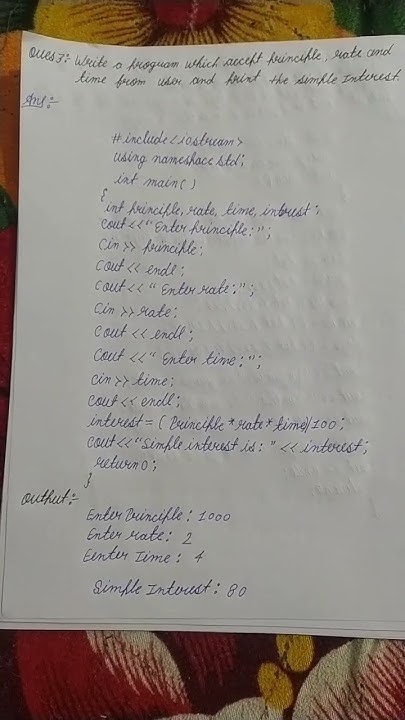 Ques 3:- Write a program which accept principle, rate and
time from user and print the simple Interest.
Ans:-
#include<iostream>
using namespace std;
int main()
{
int principle, rate, time, interest;
cout<<"Enter principle:";
Cin>> principle;
Cout<< endl;
Cout<< "Enter rate:";
Cin>>rate;
Cout << endl;
Cout <<" Enter time:";
cin>> time;
cout<< endl;
interest = ( Principle * rate * time)/100;
cout<<"Simple interest is: " << interest;
return 0;
}
Output:-
Enter Principle: 1000
Enter rate: 2
Eenter Time: 4
Simple Interest: 80